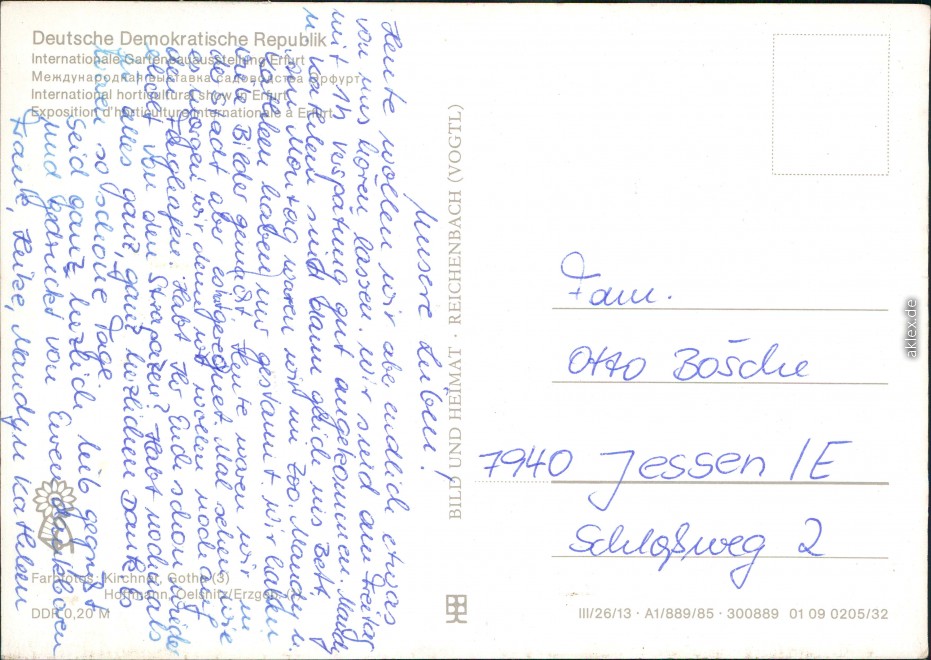 Deutsche Demokratische Republik
Internationale Gartenbauausstellung Erfurt
Международная выставка садоводства Эрфурт
International horticultural show in Erfurt
Exposition d'horticulture internationale à Erfurt
Unsere Lieben!
Heute wollen wir aber endlich etwas
von uns hören lassen. Wir sind am Freitag
mit 1h verspätung gut angekommen. Mandy
u. Kathleen sind dann gleich ins Bett
Am Montag waren wir im Zoo. Mandy u.
Kathleen haben nur gestaunt. Wir haben
viele Bilder gemacht. Heute waren wir in
der Stadt aber es regnet. Mal sehen wie
es morgen wird denn wir wollen noch auf
den Flughafen. Habt Ihr Euch schon wieder
erholt von den Strapazen? Habt nochmals
für alles ganz, ganz herzlichen Dank. Es
waren so schöne Tage.
Seid ganz herzlich lieb gegrüßt
und gedrückt von Euren dankbaren
Frank, Heike, Mandy u. Kathleen
Farbfotos: Kirchner, Gotha (3)
Hofmann, Oelsnitz/Erzgeb.
DDR 0,20 M
BILD UND HEIMAT · REICHENBACH (VOGTL)
Fam.
Otto Bösche
7940 Jessen / E
Schloßweg 2
III/26/13 · A1/889/85 · 300889 01 09 0205/32
aklex.de